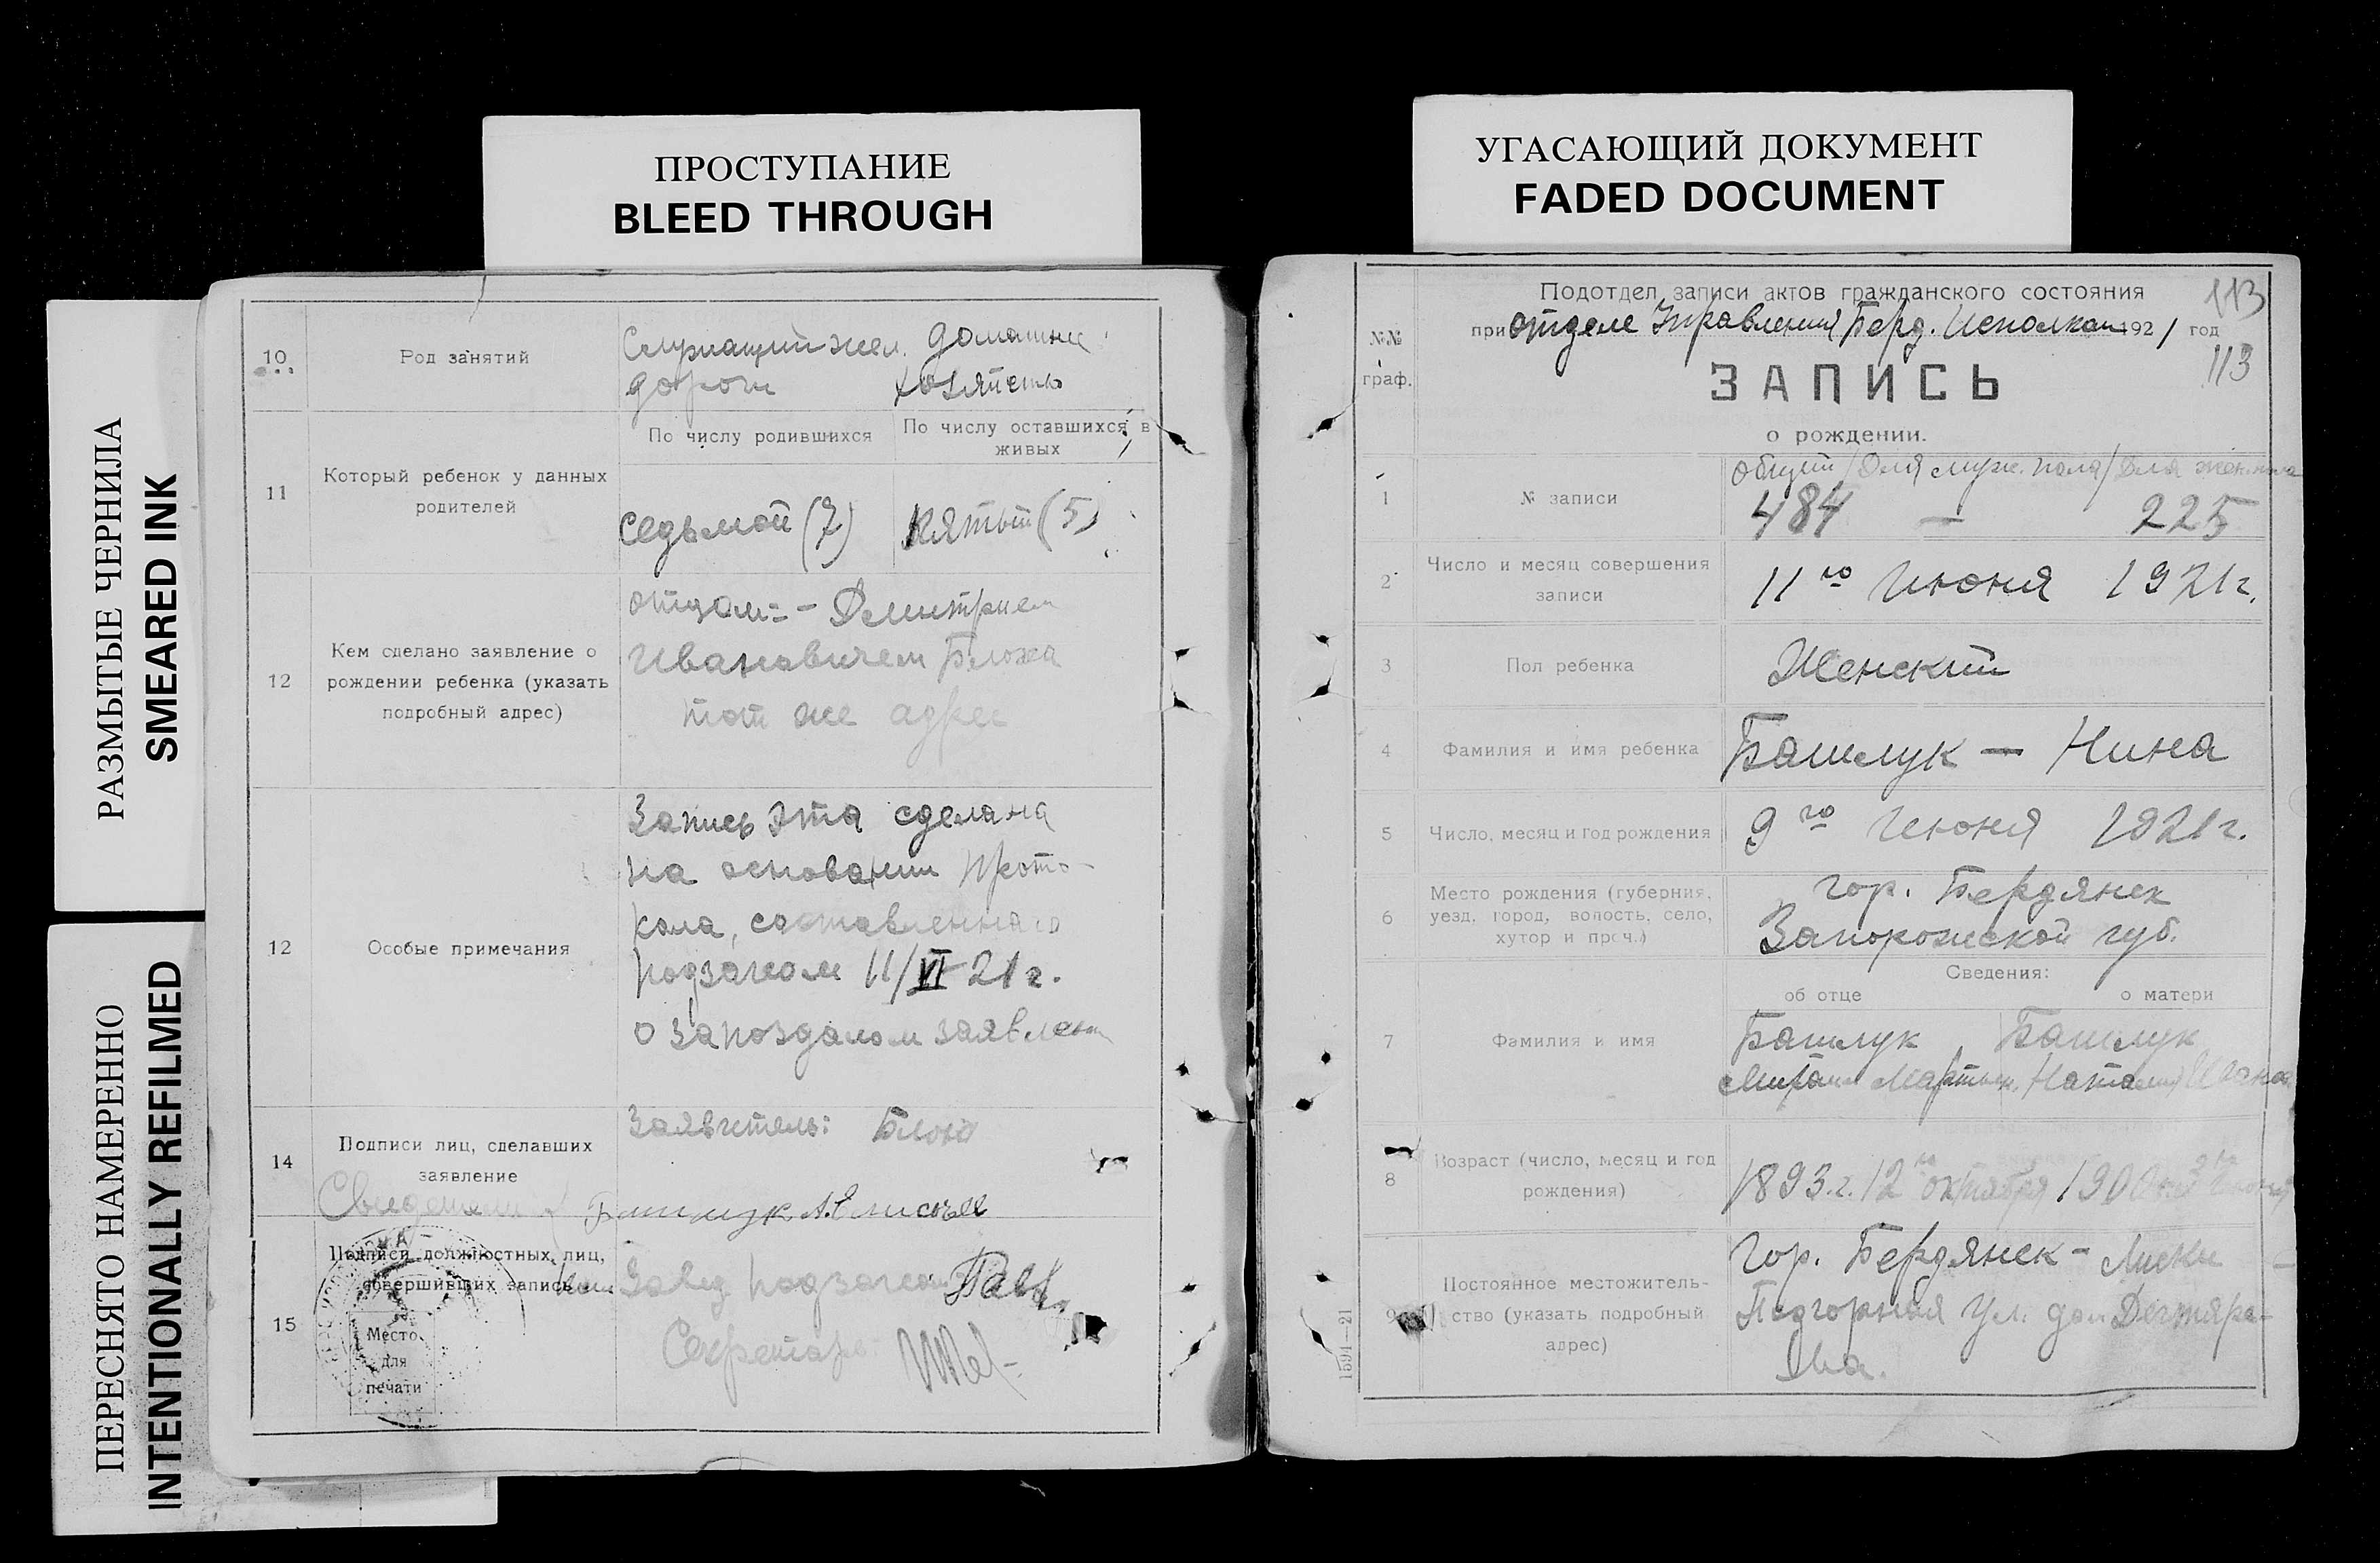 ПРОСТУПАНИЕ
BLEED THROUGH
УГАСАЮЩИЙ ДОКУМЕНТ
FADED DOCUMENT
РАЗМЫТЫЕ ЧЕРНИЛА
SMEARED INK
ПЕРЕСНЯТО НАМЕРЕННО
INTENTIONALLY REFILMED
10
Род занятий
Служащий жел. дороги
домашнее хозяйство
11
Который ребенок у данных
родителей
По числу родившихся
По числу оставшихся в
живых
Седьмой (7)
Пятый (5)
12
Кем сделано заявление о
рождении ребенка (указать
подробный адрес)
отцом: - Димитрием
Ивановичем
тот же адрес
12
Особые примечания
Запись эта сделана
на основании прото-
кола, составленного
подзагсом 11/VI 21 г.
о запоздалом заявлении
14
Подписи лиц, сделавших
заявление
Заявитель:
Свидетели
Башлук А.
15
Подписи должностных лиц,
совершивших запись
Место
для
печати
Завед. подзагсом
Секретарь
№№
граф.
Подотдел записи актов гражданского состояния
при отделе Управления Берд. Исполком 1921 год
113
113
ЗАПИСЬ
о рождении.
1
№ записи
общий / для муж. пола / для жен. пола
484 — 225
2
Число и месяц совершения
записи
11го Июня 1921 г.
3
Пол ребенка
Женский
4
Фамилия и имя ребенка
Башлук — Нина
5
Число, месяц и год рождения
9го Июня 1921 г.
6
Место рождения (губерния,
уезд, город, волость, село,
хутор и проч.)
гор. Бердянск
Запорожской губ.
Сведения:
об отце
о матери
7
Фамилия и имя
Башлук
Башлук
Михаил Мартын.
Наталия
8
Возраст (число, месяц и год
рождения)
1893 г. 12го октября
1900
9
Постоянное местожитель-
ство (указать подробный
адрес)
Гор. Бердянск - Лиски
Подгорная ул. дом Дегтяре-
ва.
1594—21